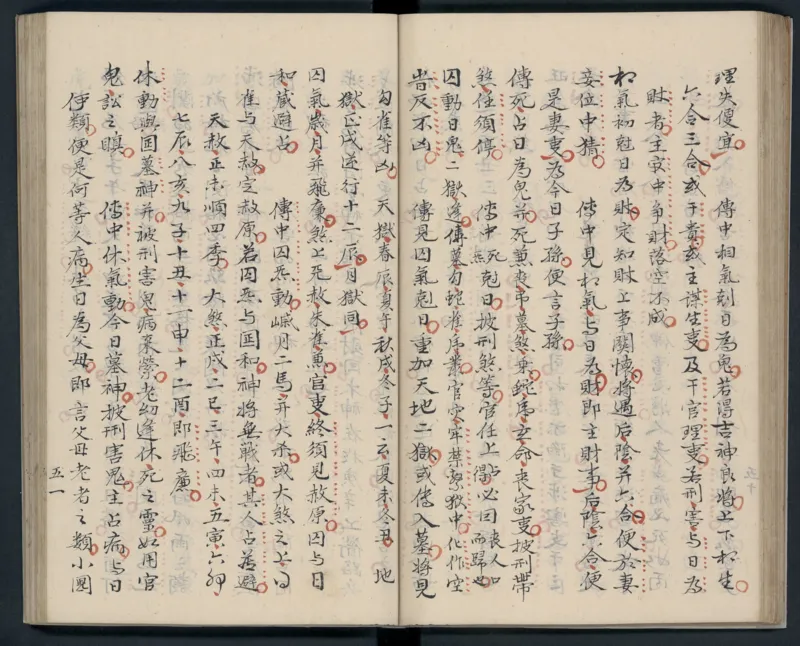 理失便宜 傳中相氣剋日為鬼若得吉神良將上下相生
六合三合或干貴或主謀生吏及干官理吏若刑害与日為
財者主哀中争財落空不成
相氣初剋日為財定知財上事關懐將遇后陰并六合便於妻
妾位中猜 傳中見相氣与日為財即主財事后陰六合便
是妻吏為今日子孫便言子孫
傳死占日為鬼并死炁喪吊墓煞乗蛇虎立命喪家吏披刑帶
煞住須停 傳中死炁剋日披刑煞等官任上占必因喪人口而歸也
囚動日鬼二獄逢傳墓勾蛇雀虎叢官灾牢禁繫獄中化作空
皆反不凶 傳見囚氣剋日重加天地二獄或傳入墓將見
勾雀等凶 天獄春辰夏午秋戌冬子一云夏未冬丑 地
獄正戌逆行十二辰月獄同
囚氣歳月并飛廉煞上死赦朱雀魚官吏終須見赦原囚与日
和蔵避占 傳中囚炁動歳月二馬并大杀或大煞之上得
雀与天赦定赦原若囚炁与囯和神將無戦者其人占若避
天赦正未順四季 大煞正戌二巳三午四未五寅六卯
七辰八亥九子十丑十一申十二酉即飛廉
休動與囯墓神并被刑害鬼病来縈老幼逢休死之靈如用官
鬼訟之瞋 傳中休氣動今日墓神披刑害鬼主占病与日
伊類便是何等人病生日為父母即言父母老者之類小囯
五一